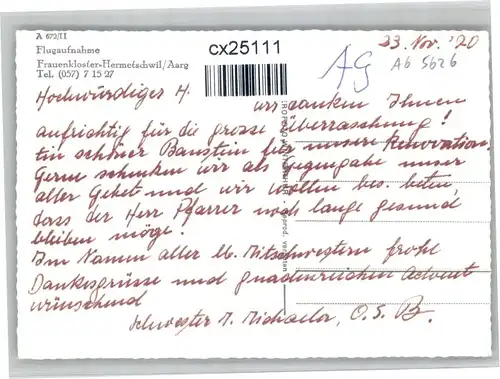 A 672/II
Flugaufnahme
Frauenkloster-Hermetschwil/Aarg
Tel. (057) 7 15 27
cx25111
23. Nov. '20
AG
Ab 5626
Hochwürdiger H. wir danken Ihnen
aufrichtig für die grosse Überraschung!
Ein schöner Baustein für unsere Renovation.
Gerne schenken wir als Gegengabe unser
aller Gebet und wir wollen bes. beten,
dass der Herr Pfarrer noch lange gesund
bleiben möge!
Im Namen aller lb. Mitschwestern frohe
Dankesgrüsse und gnadenreichen Advent
wünschend
Schwester M. Michaela, O.S.B.